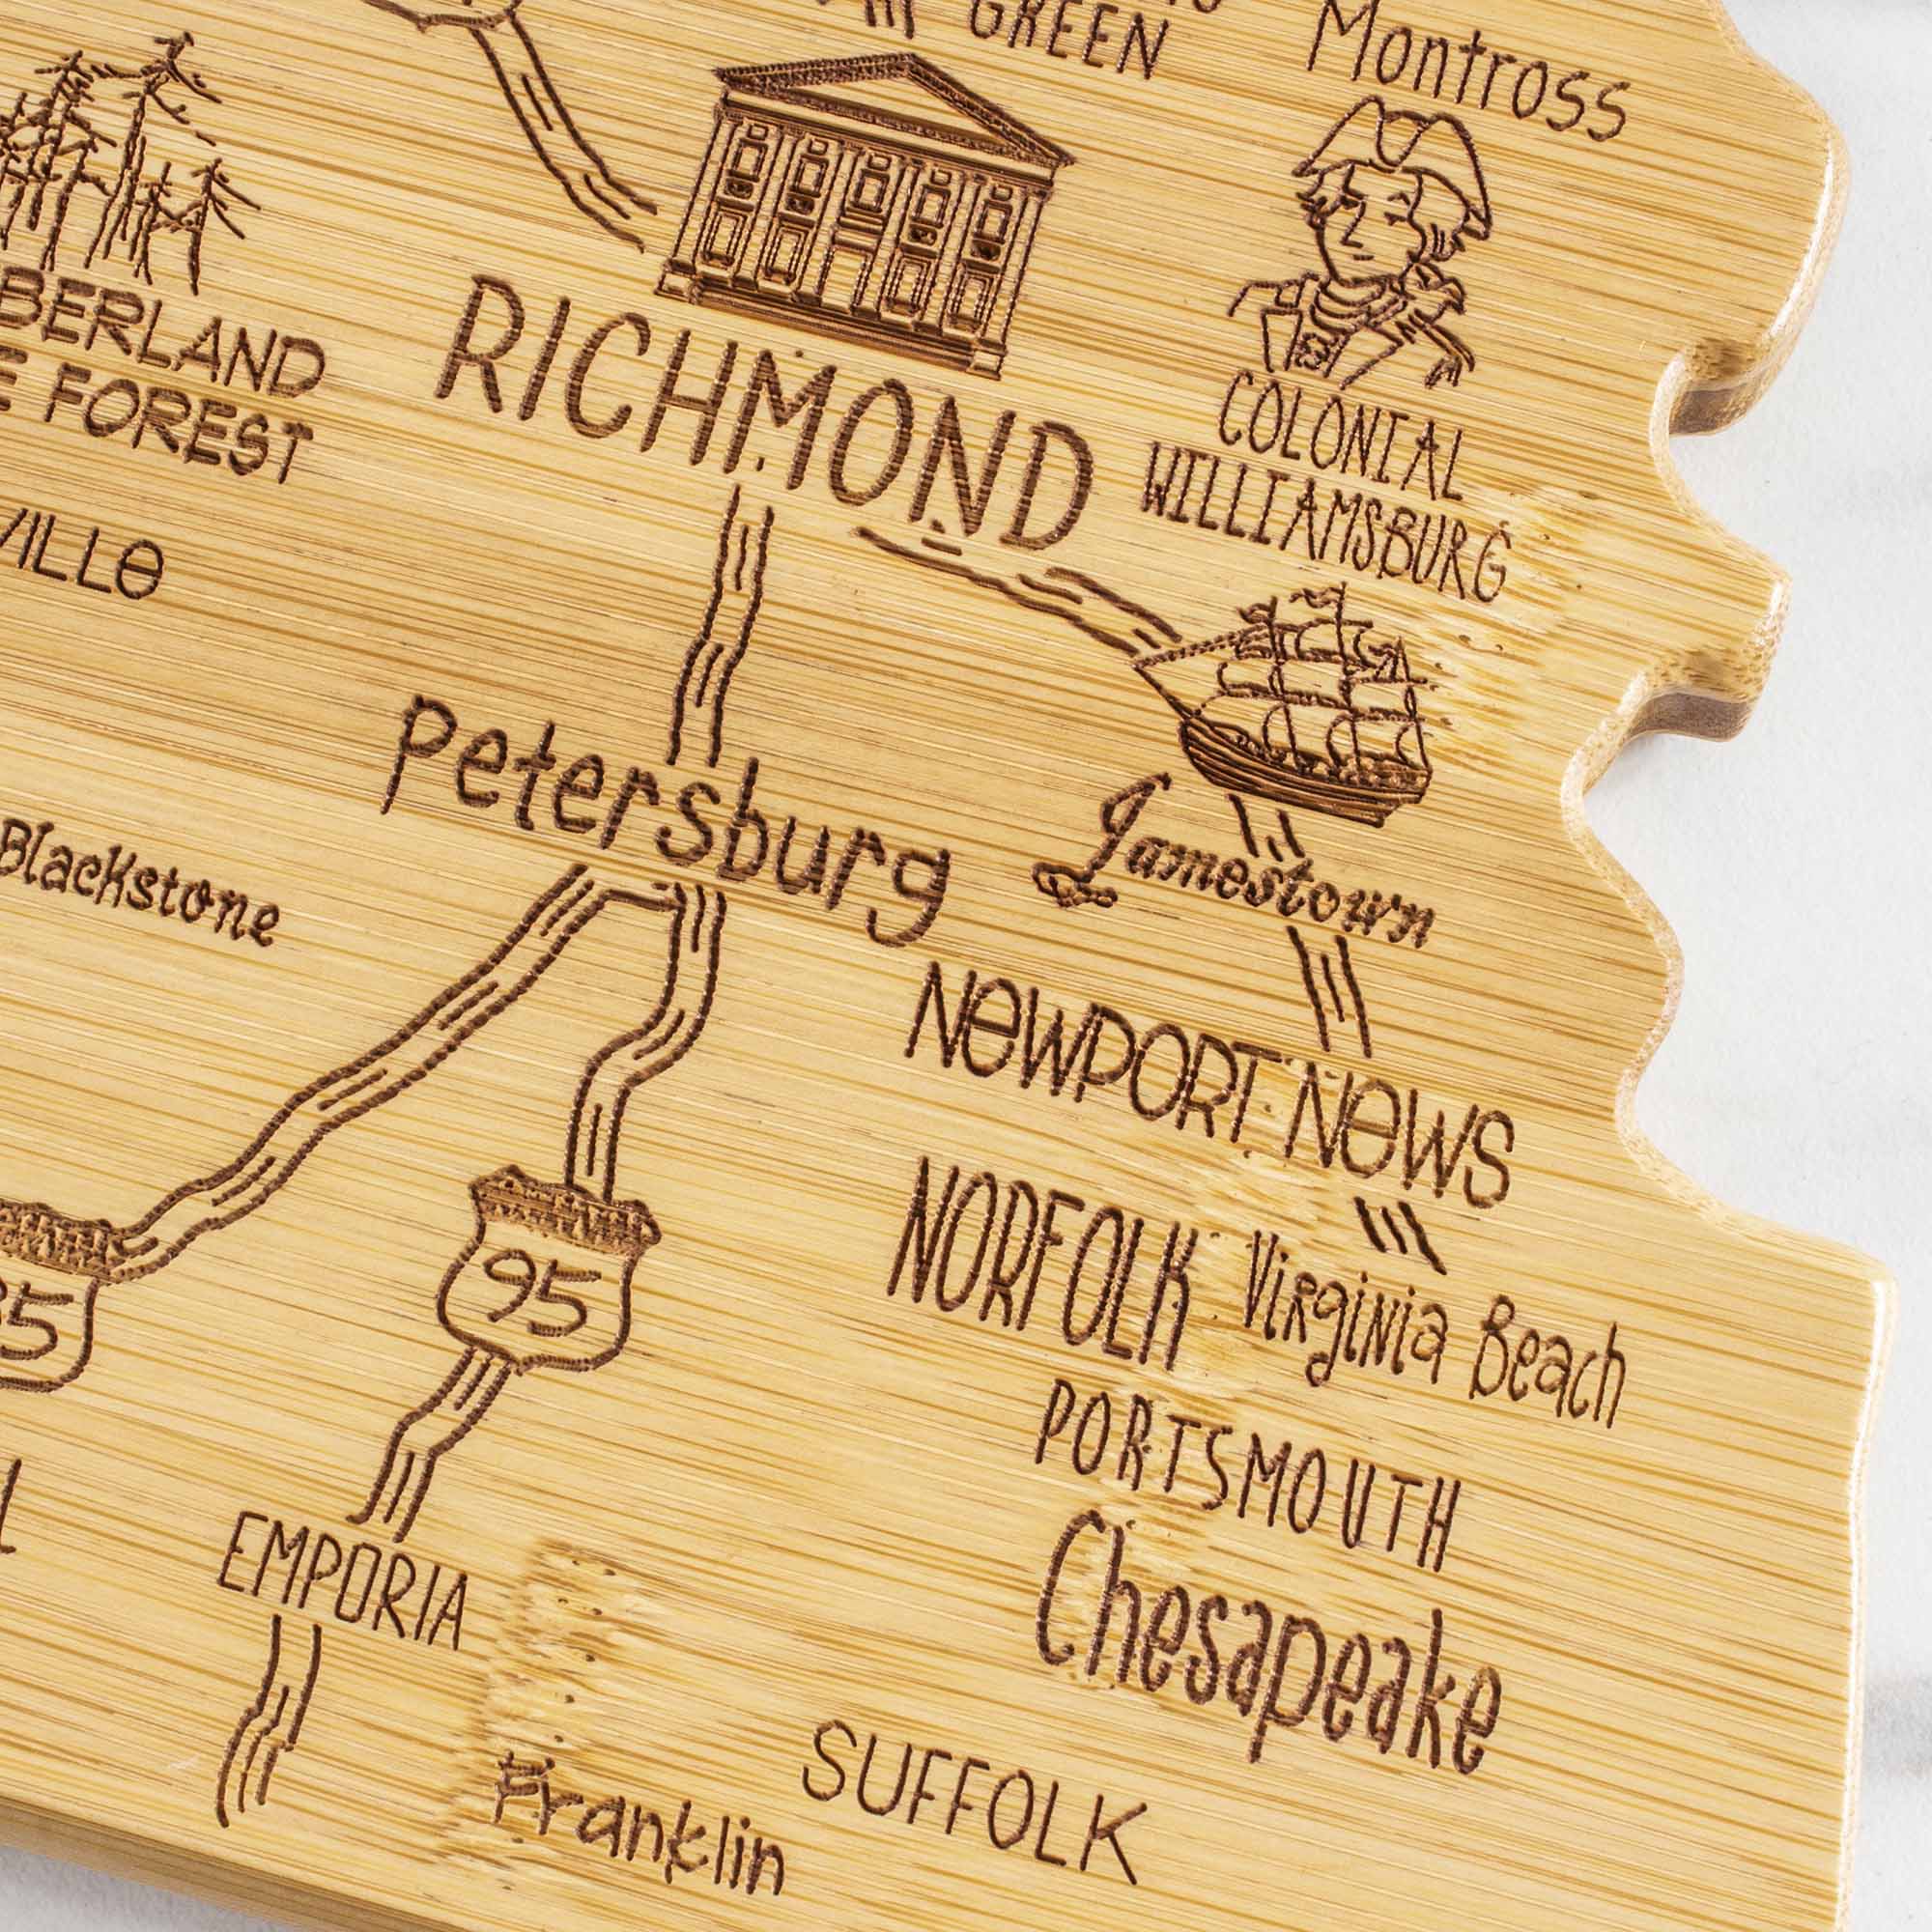 GREEN
Montross
BERLAND
E FOREST
RICHMOND
COLONIAL
WILLIAMSBURG
VILLE
Petersburg
Jamestown
Blackstone
NEWPORT NEWS
NORFOLK
Virginia Beach
95
85
PORTSMOUTH
EMPORIA
Chesapeake
SUFFOLK
Franklin